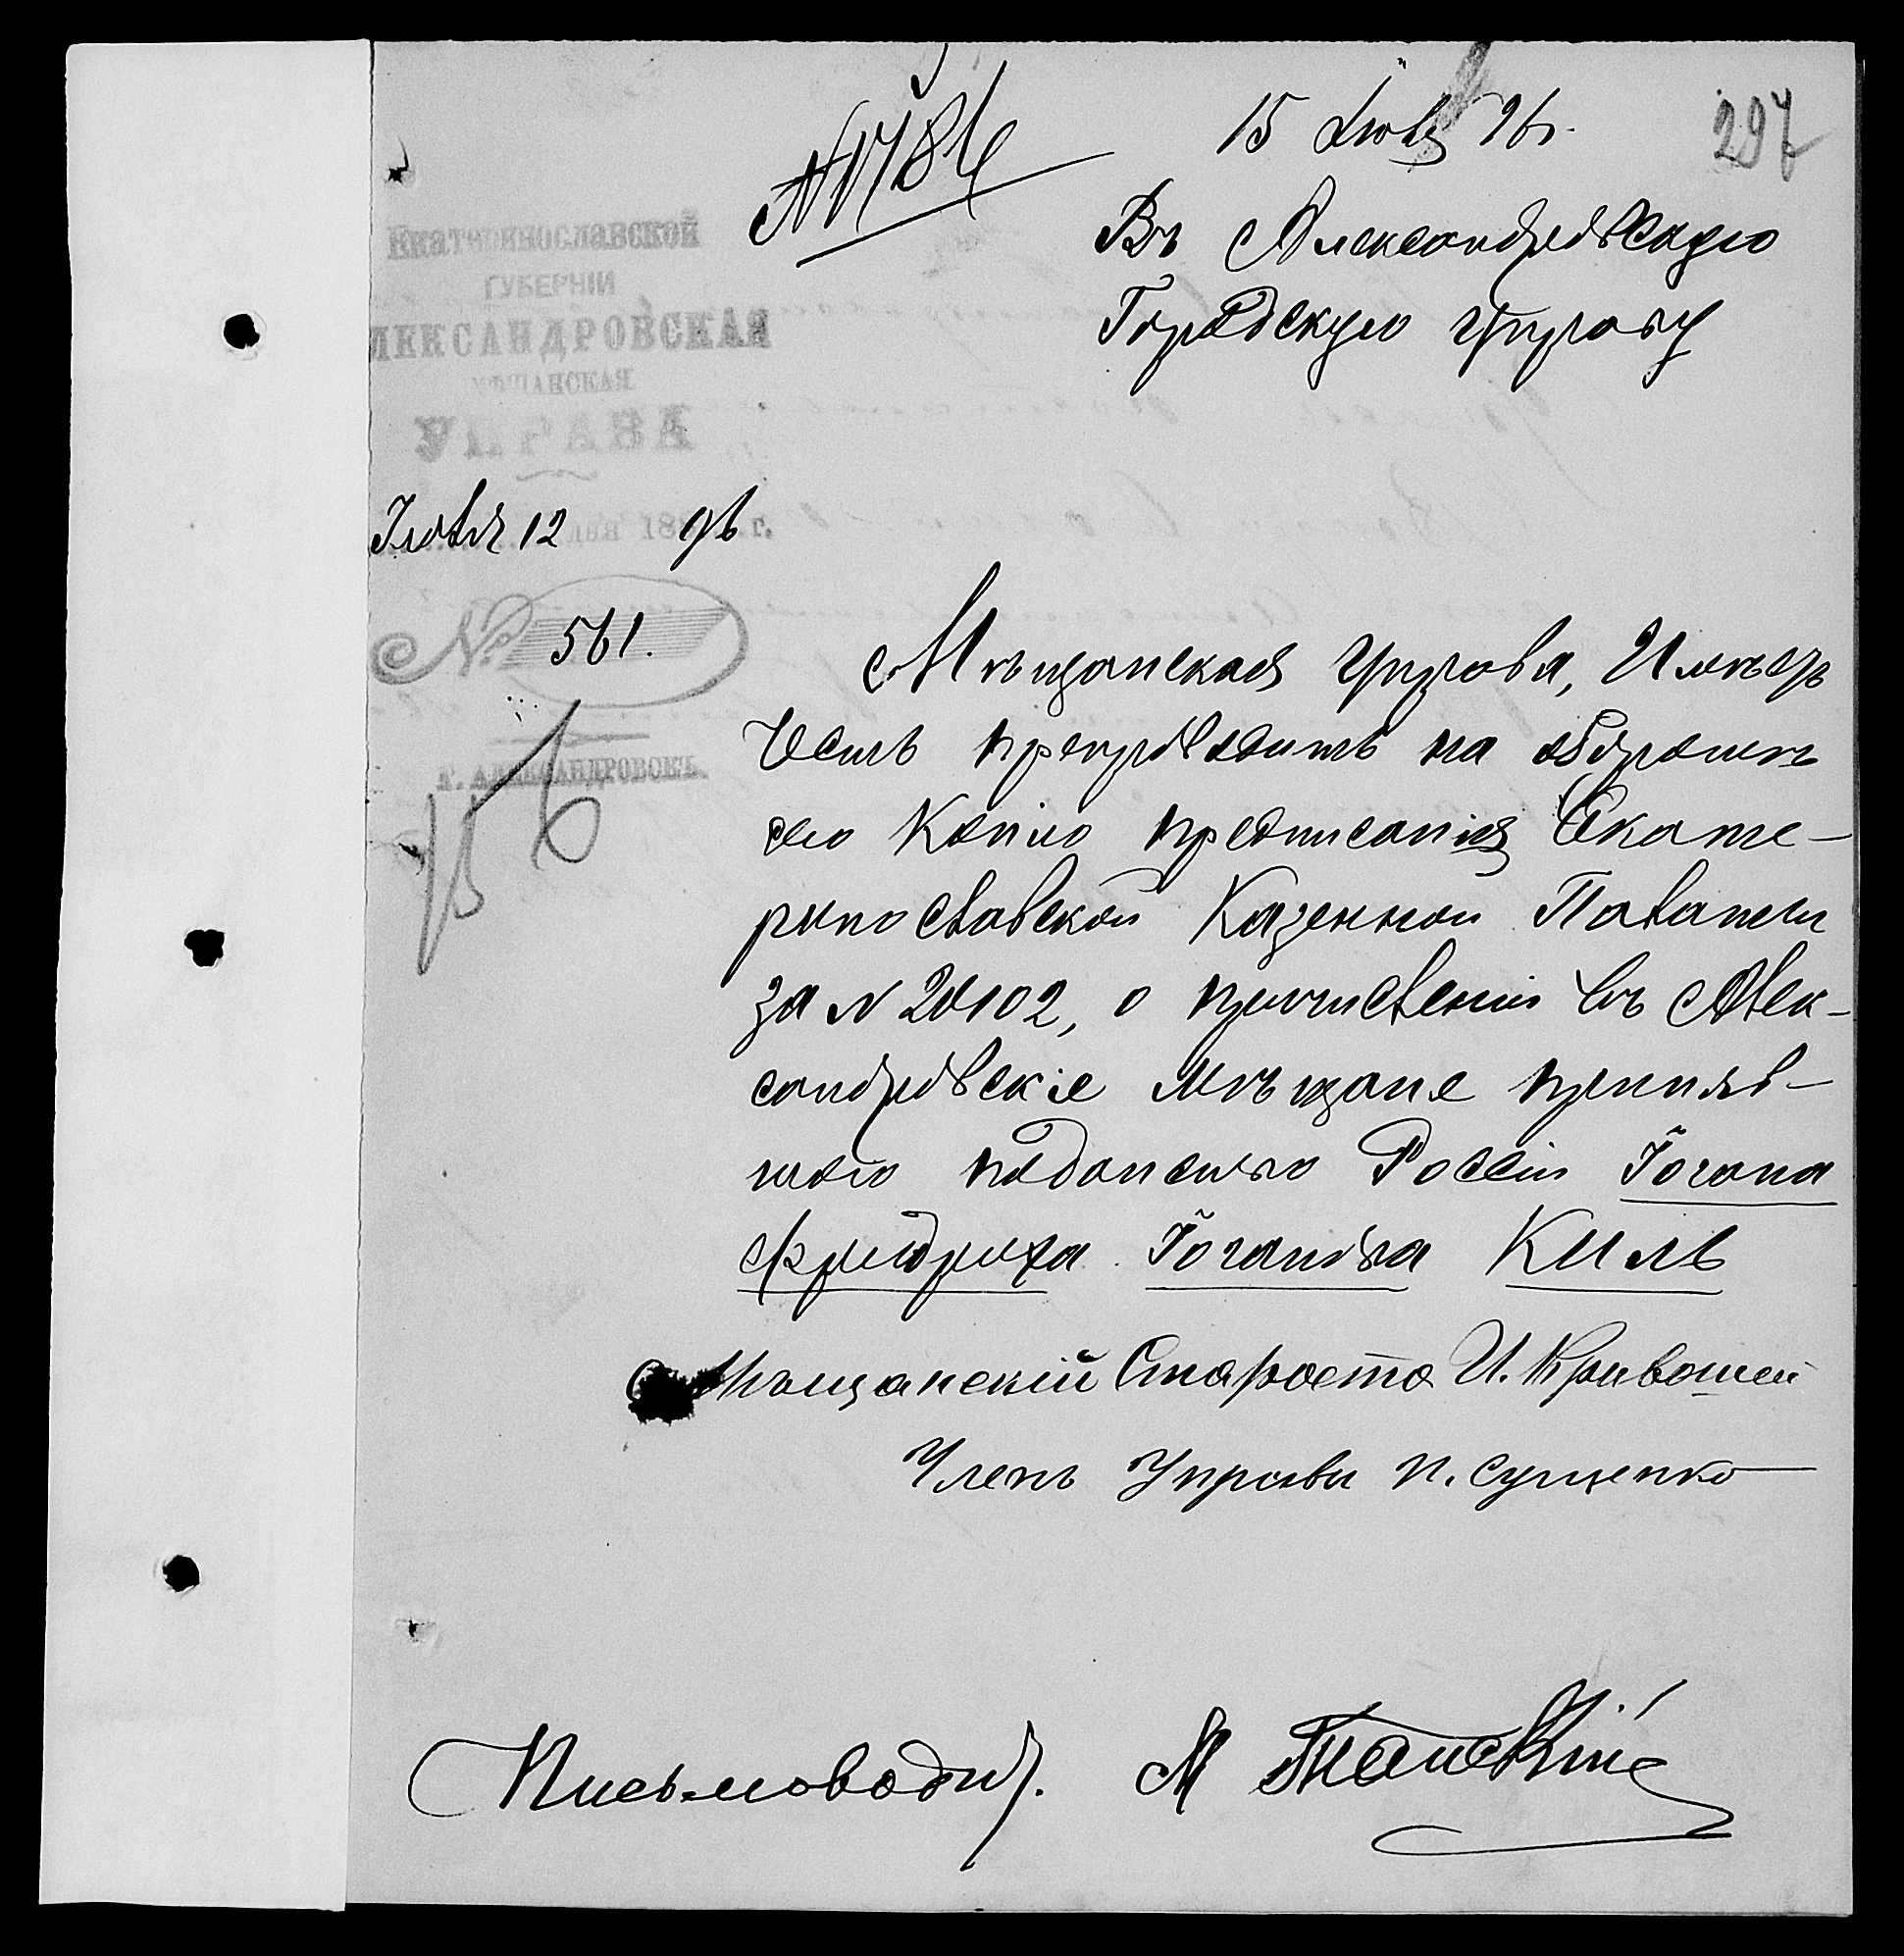 15 Июля 96 г.
297
№ 1784
Въ Александровскую
Городскую Управу
Екатеринославской
ГУБЕРНІИ
АЛЕКСАНДРОВСКАЯ
МѢЩАНСКАЯ
УПРАВА
Іюля 12 дня 1896 г.
№ 561.
г. АЛЕКСАНДРОВСКЪ.
Мѣщанская Управа, Имѣетъ
честь препроводить на оборотѣ
сего Копію предписанія Екате-
ринославской Казенной Палаты
за № 20102, о причисленіи въ Алек-
сандровскіе Мѣщане приняв-
шаго подданство Россіи Іогана
Фридриха Іоганова Киль
Мѣщанскій Староста И. Кривошей
Членъ Управы П. Сущенко
Письмоводит. М